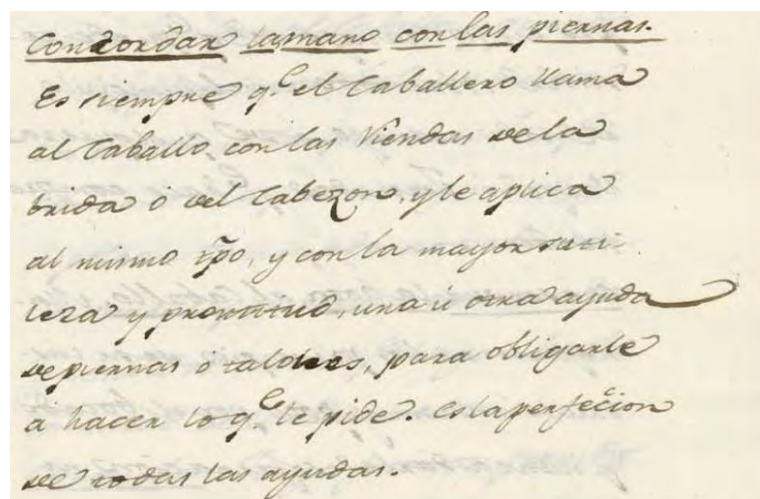 Concordar la mano con las piernas.
Es siempre q.e el Caballero llama
al Caballo con las Riendas de la
brida ó del Cabezon, y le aplica
al mismo tpo, y con la mayor suti-
leza y prontitud, una ú otra ayuda
de piernas ó talones, para obligarle
á hacer lo q.e le pide. Es la perfeccion
de todas las ayudas.